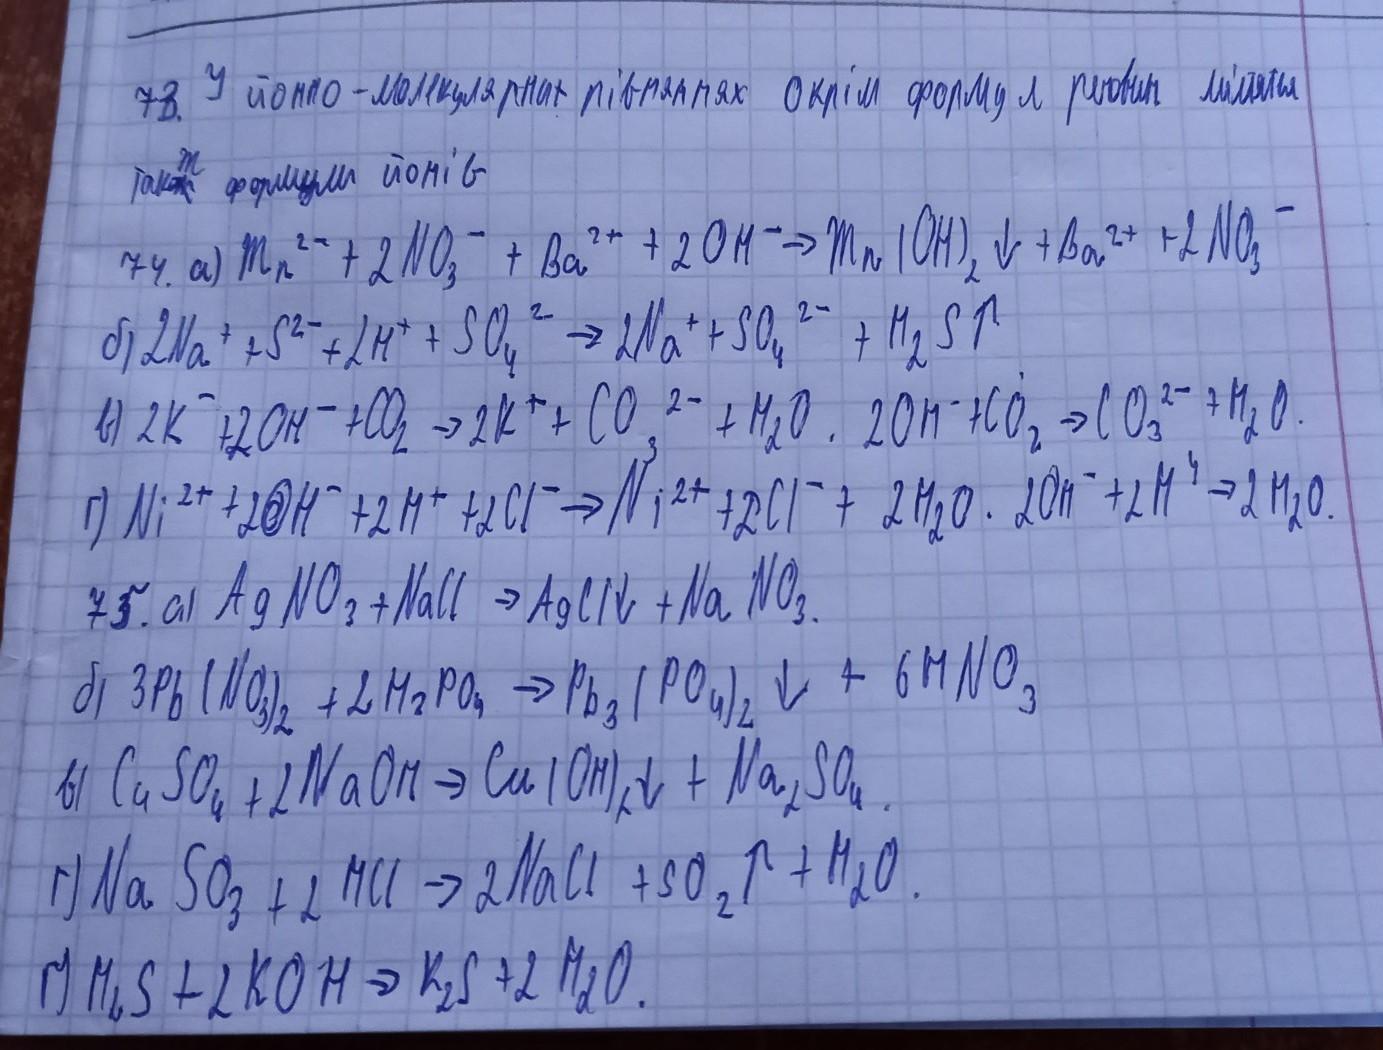 73. У йонно-молекулярних рівняннях окрім формул речовин містяться
також формули йонів
74. а) Mn²⁻ + 2NO₃⁻ + Ba²⁺ + 2OH⁻ → Mn(OH)₂↓ + Ba²⁺ + 2NO₃⁻
б) 2Na⁺ + S²⁻ + 2H⁺ + SO₄²⁻ → 2Na⁺ + SO₄²⁻ + H₂S↑
в) 2K⁻ + 2OH⁻ + CO₂ → 2K⁺ + CO₃²⁻ + H₂O. 2OH⁻ + CO₂ → CO₃²⁻ + H₂O.
г) Ni²⁺ + 2OH⁻ + 2H⁺ + 2Cl⁻ → Ni²⁺ + 2Cl⁻ + 2H₂O. 2OH⁻ + 2H⁺ → 2H₂O.
75. а) AgNO₃ + NaCl → AgCl↓ + NaNO₃.
б) 3Pb(NO₃)₂ + 2H₃PO₄ → Pb₃(PO₄)₂↓ + 6HNO₃
в) CuSO₄ + 2NaOH → Cu(OH)₂↓ + Na₂SO₄.
г) NaSO₃ + 2HCl → 2NaCl + SO₂↑ + H₂O.
ґ) H₂S + 2KOH → K₂S + 2H₂O.